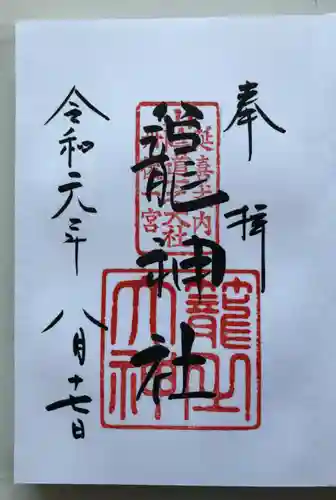 奉拝
延喜式内
山陰道名大社
丹後一宮
籠神社
籠之大神
令和元年
八月十七日